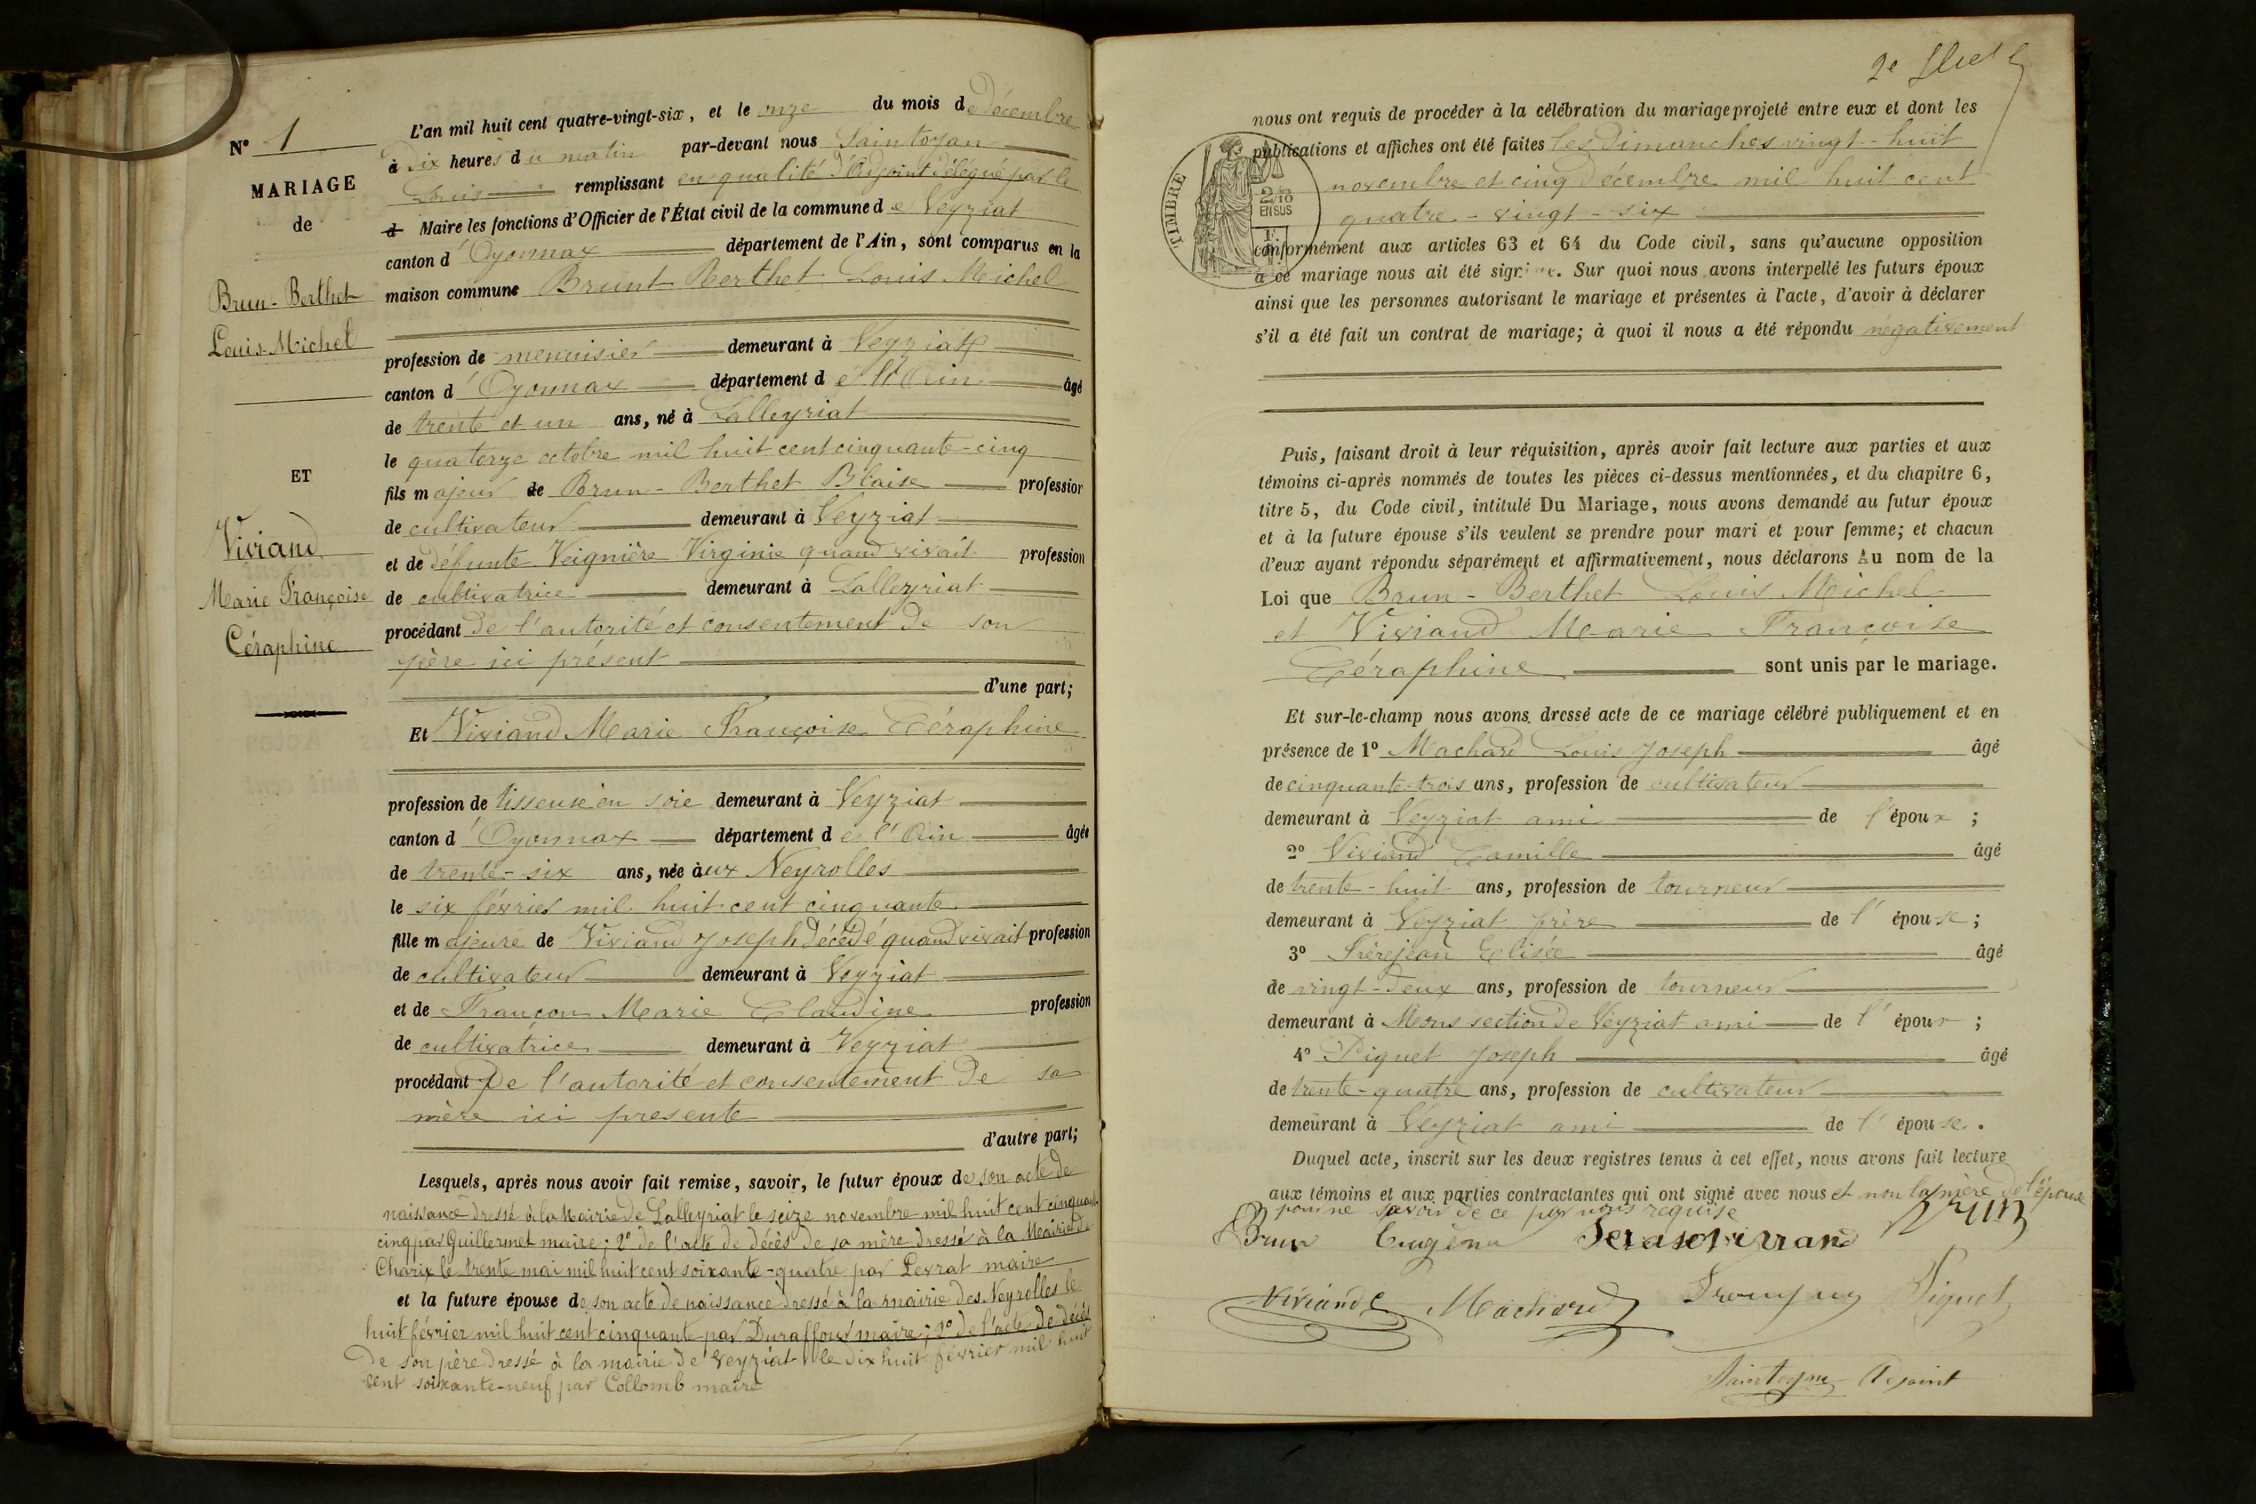 N° 1
MARIAGE
de
Brun-Berthet
Louis-Michel
ET
Viviand
Marie Françoise
Céraphine
L'an mil huit cent quatre-vingt-six, et le onze du mois de Décembre
à Dix heures du matin par-devant nous Saintoyan
Louis remplissant en qualité d'Adjoint délégué par le
d Maire les fonctions d'Officier de l'État civil de la commune de Veyziat
canton d'Oyonnax département de l'Ain, sont comparus en la
maison commune Brunt Berthet Louis Michel
profession de menuisier demeurant à Veyziat
canton d'Oyonnax département de l'Ain âgé
de trente et un ans, né à Lalleyriat
le quatorze octobre mil huit cent cinquante-cinq
fils majeur de Brun-Berthet Blaise profession
de cultivateur demeurant à Veyziat
et de défunte Veignière Virginie quand vivait profession
de cultivatrice demeurant à Lalleyriat
procédant de l'autorité et consentement de son
père ici présent
d'une part;
Et Viviand Marie Françoise Céraphine
profession de tisseuse en soie demeurant à Veyziat
canton d'Oyonnax département de l'Ain âgée
de trente-six ans, née aux Neyrolles
le six février mil huit cent cinquante
fille majeure de Viviand Joseph décédé quand vivait profession
de cultivateur demeurant à Veyziat
et de Françon Marie Claudine profession
de cultivatrice demeurant à Veyziat
procédant De l'autorité et consentement de sa
mère ici presente
d'autre part;
Lesquels, après nous avoir fait remise, savoir, le futur époux de son acte de
naissance dressé à la Mairie de Lalleyriat le seize novembre mil huit cent cinquante
cinq par Guillermet maire; 2° de l'acte de décès de sa mère dressé à la Mairie de
Charix le trente mai mil huit cent soixante-quatre par Levrat maire
et la future épouse de son acte de naissance dressé à la mairie des Neyrolles le
huit février mil huit cent cinquante par Duraffour maire; 2° de l'acte de décès
de son père dressé à la mairie de Veyziat le dix huit février mil huit
cent soixante-neuf par Collomb maire
2e
nous ont requis de procéder à la célébration du mariage projeté entre eux et dont les
publications et affiches ont été faites les Dimanches vingt-huit
novembre et cinq Décembre mil huit cent
quatre-vingt-six
TIMBRE
2/10
EN SUS
conformément aux articles 63 et 64 du Code civil, sans qu'aucune opposition
à ce mariage nous ait été signifiée. Sur quoi nous avons interpellé les futurs époux
ainsi que les personnes autorisant le mariage et présentes à l'acte, d'avoir à déclarer
s'il a été fait un contrat de mariage; à quoi il nous a été répondu négativement
Puis, faisant droit à leur réquisition, après avoir fait lecture aux parties et aux
témoins ci-après nommés de toutes les pièces ci-dessus mentionnées, et du chapitre 6,
titre 5, du Code civil, intitulé Du Mariage, nous avons demandé au futur époux
et à la future épouse s'ils veulent se prendre pour mari et pour femme; et chacun
d'eux ayant répondu séparément et affirmativement, nous déclarons Au nom de la
Loi que Brun-Berthet Louis Michel
et Viviand Marie Françoise
Céraphine sont unis par le mariage.
Et sur-le-champ nous avons dressé acte de ce mariage célébré publiquement et en
présence de 1° Machard Louis Joseph âgé
de cinquante-trois ans, profession de cultivateur
demeurant à Veyziat ami de l'époux;
2° Viviand Camille âgé
de trente-huit ans, profession de tourneur
demeurant à Veyziat frère de l'épouse;
3° Frèrejean Elisée âgé
de vingt-deux ans, profession de tourneur
demeurant à Mons section de Veyziat ami de l'époux;
4° Piquet Joseph âgé
de trente-quatre ans, profession de cultivateur
demeurant à Veyziat ami de l'épouse.
Duquel acte, inscrit sur les deux registres tenus à cet effet, nous avons fait lecture
aux témoins et aux parties contractantes qui ont signé avec nous et non la mère de l'épouse
pour ne savoir de ce par nous requise
Brun Brun
Viviand C Machard Piquet
Saintoyan Adjoint